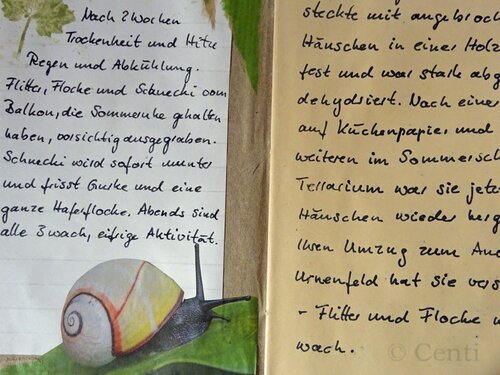 Nach 2 Wochen
Trockenheit und Hitze
Regen und Abkühlung.
Flitter, Flocke und Schnecki vom
Balkon, die Sommerruhe gehalten
haben, vorsichtig ausgegraben.
Schnecki wird sofort munter
und frisst Gurke und eine
ganze Haferflocke. Abends sind
alle 3 wach, eifrige Aktivität.
steckte mit angebroc
Häuschen in einer Holz
fest und war stark abg
dehydriert. Nach eine
auf Küchenpapier und
weiteren im Sommersch
Terrarium war sie jetz
Häuschen wieder herg
Ihren Umzug zum Aue
Urnenfeld hat sie vers
- Flitter und Flocke w
wach.
© Centi